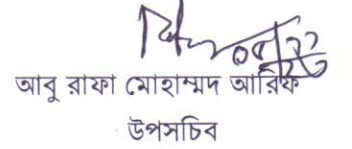 আবু রাফা মোহাম্মদ আরিফ
উপসচিব